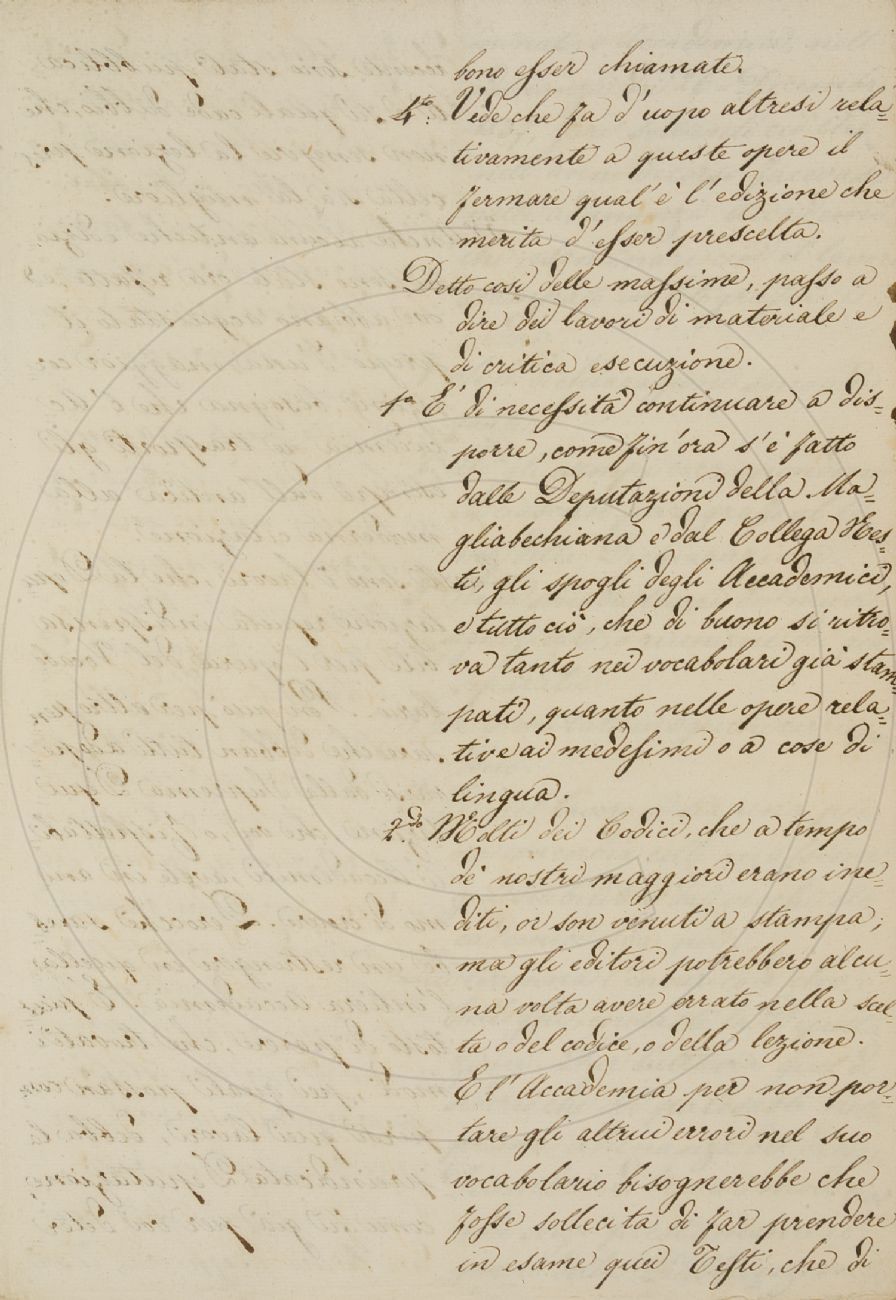 bono esser chiamate.
4to: Vede che fa d'uopo altresì rela=
tivamente a queste opere il
fermare qual'è l'edizione che
merita d'esser prescelta.
Detto così delle massime, passo a
dire dei lavori di materiale e
di critica esecuzione.
1o È di necessità continuare a dis=
porre, come fin'ora s'è fatto
dalle Deputazioni della Ma=
gliabechiana e dal Collega Res=
ti, gli spogli degli Accademici,
e tutto ciò, che di buono si ritro=
va tanto nei vocabolari già stam=
pati, quanto nelle opere rela=
tive ai medesimi o a cose di
lingua.
2do. Molti dei Codici, che a tempo
de' nostri maggiori erano ine=
diti, or son venuti a stampa;
ma gli editori potrebbero alcu=
na volta avere errato nella scel=
ta o del codice, o della lezione.
E l'Accademia per non por=
tare gli altrui errori nel suo
vocabolario bisognerebbe che
fosse sollecita di far prendere
in esame quei Testi, che di